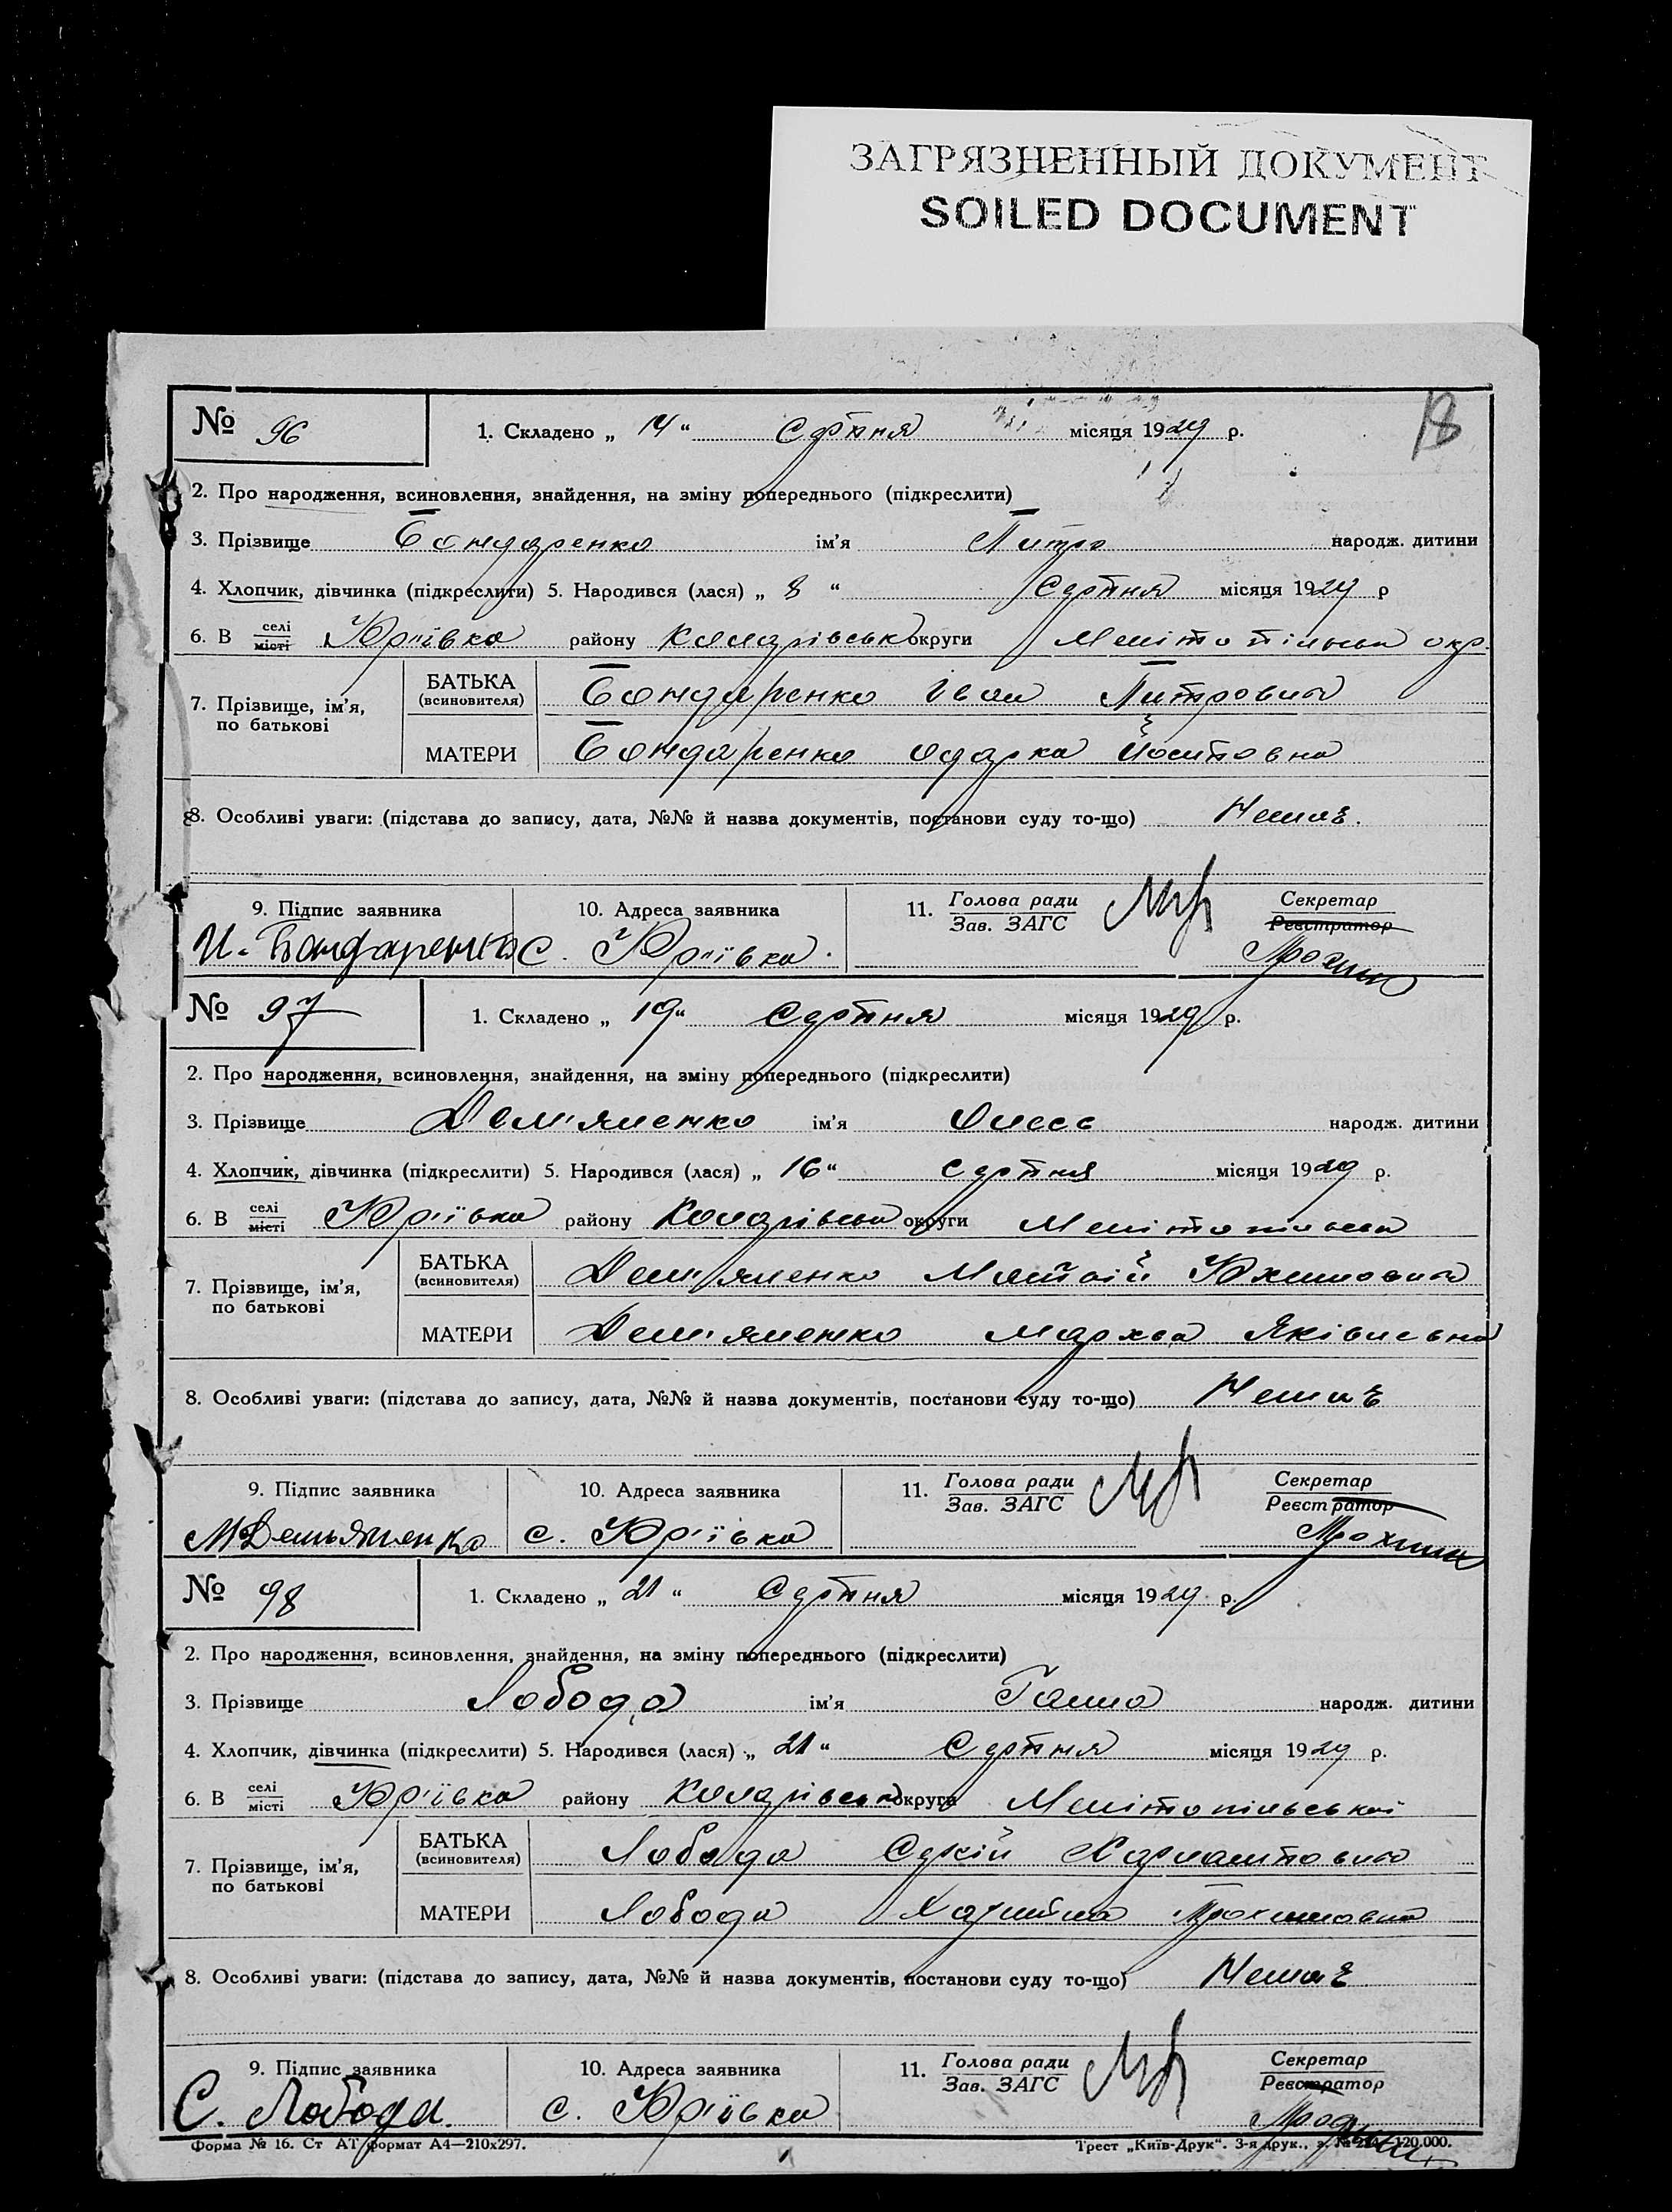 ЗАГРЯЗНЕННЫЙ ДОКУМЕНТ
SOILED DOCUMENT
18
№ 96 1. Складено „ 14 “ Серпня місяця 1929 р.
2. Про народження, всиновлення, знайдення, на зміну попереднього (підкреслити)
3. Прізвище Бондаренко ім’я Питро народж. дитини
4. Хлопчик, дівчинка (підкреслити) 5. Народився (лася) „ 8 “ Серпня місяця 1929 р
6. В селі місті Юр'ївка району Коларівськ округи Мелітопільска окр.
7. Прізвище, ім’я, по батькові БАТЬКА (всиновителя) Бондаренко Іван Питрович
МАТЕРИ Бондаренко Одарка Йосиповна
8. Особливі уваги: (підстава до запису, дата, №№ й назва документів, постанови суду то-що) Немає.
9. Підпис заявника 10. Адреса заявника 11. Голова ради Зав. ЗАГС Секретар Реєстратор
И. Бондаренко С. Юр'ївка.
№ 97 1. Складено „ 19 “ Серпня місяця 1929 р.
2. Про народження, всиновлення, знайдення, на зміну попереднього (підкреслити)
3. Прізвище Дем'яненко ім’я Олесь народж. дитини
4. Хлопчик, дівчинка (підкреслити) 5. Народився (лася) „ 16 “ Серпня місяця 1929 р.
6. В селі місті Юр'ївка району Коларівська округи Мелітопільска
7. Прізвище, ім’я, по батькові БАТЬКА (всиновителя) Дем'яненко Матвій Юхимович
МАТЕРИ Дем'яненко Мархва Яківлевна
8. Особливі уваги: (підстава до запису, дата, №№ й назва документів, постанови суду то-що) Немає
9. Підпис заявника 10. Адреса заявника 11. Голова ради Зав. ЗАГС Секретар Реєстратор
М Демьяненко с. Юр'ївка
№ 98 1. Складено „ 21 “ Серпня місяця 1929 р.
2. Про народження, всиновлення, знайдення, на зміну попереднього (підкреслити)
3. Прізвище Лобода ім’я Ганна народж. дитини
4. Хлопчик, дівчинка (підкреслити) 5. Народився (лася) „ 21 “ Серпня місяця 1929 р.
6. В селі місті Юр'ївка району Коларівська округи Мелітопільської
7. Прізвище, ім’я, по батькові БАТЬКА (всиновителя) Лобода Сергій
МАТЕРИ Лобода Трохимовна
8. Особливі уваги: (підстава до запису, дата, №№ й назва документів, постанови суду то-що) Немає
9. Підпис заявника 10. Адреса заявника 11. Голова ради Зав. ЗАГС Секретар Реєстратор
С. Лобода. с. Юр'ївка
Форма № 16. Ст АТ формат А4—210х297. Трест „Київ-Друк“. 3-я друк., 120.000.